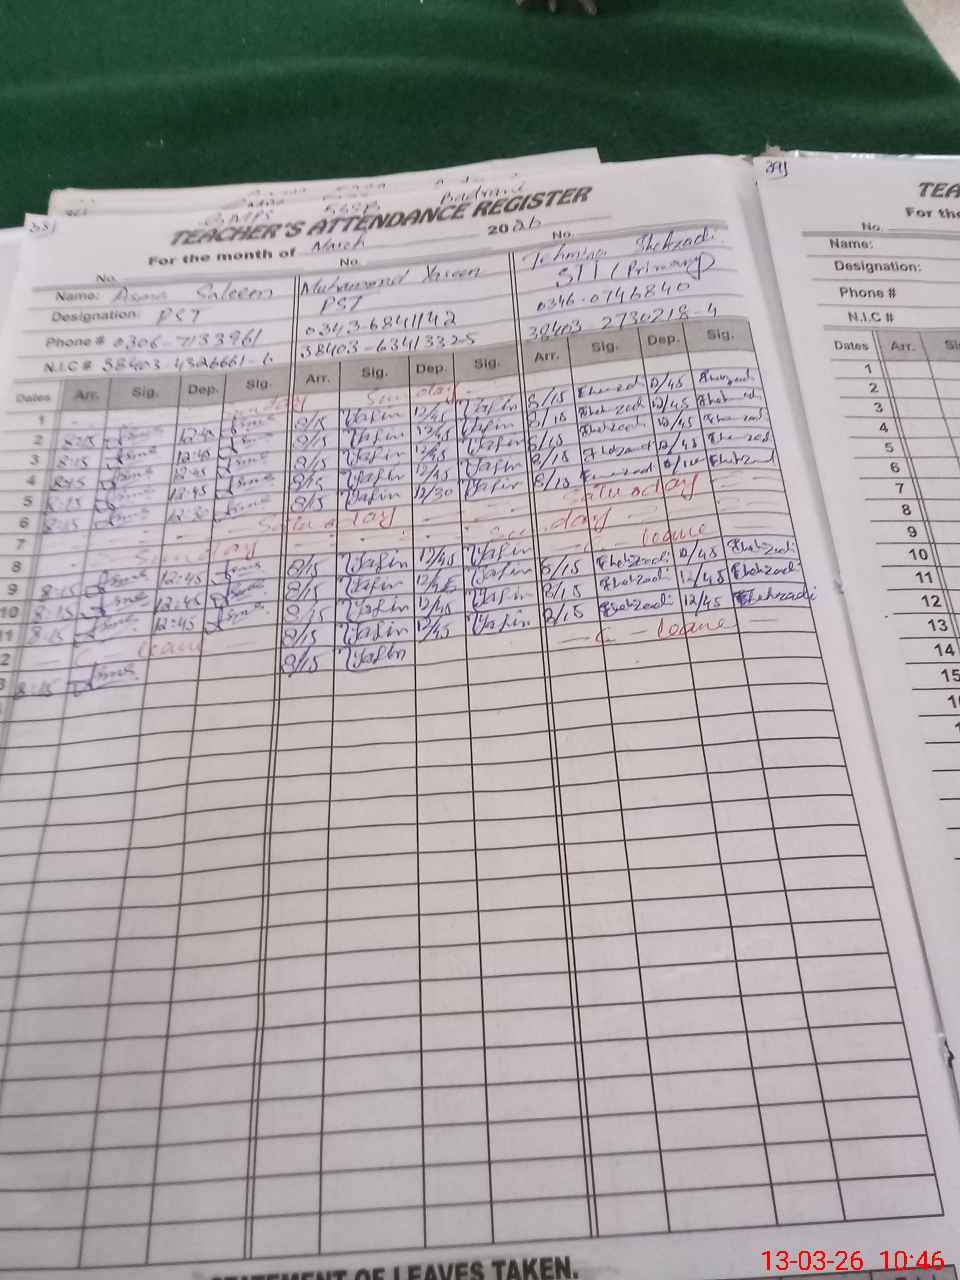 TEACHER'S ATTENDANCE REGISTER
For the month of March 2026
No. No. No.
Name: Asma Saleem Muhammad Yaseen Tehmina Shehzadi
Designation: PST PST SII / Primary
Phone # 0306-7133961 0343-6841142 0346-0746840
N.I.C # 38403-4326661-6 38403-6341332-5 38403-2730218-4
Dates Arr. Sig. Dep. Sig. Arr. Sig. Dep. Sig. Arr. Sig. Dep. Sig.
1 Sunday Sunday
2 8:15 12:45 8/15 Yasin 12/45 Yasin 8/15 Shehzadi 12/45 Shehzadi
3 8:15 12:45 8/15 Yasin 12/45 Yasin 8/15 Shehzadi 12/45 Shehzadi
4 8:15 12:45 8/15 Yasin 12/45 Yasin 8/15 Shehzadi 12/45 Shehzadi
5 8:15 12:45 8/15 Yasin 12/45 Yasin 8/15 Shehzadi 12/45 Shehzadi
6 8:15 12:30 8/15 Yasin 12/30 Yasin 8/15 Shehzadi
7 Saturday Saturday
8 Sunday Sunday
9 8:15 12:45 8/15 Yasin 12/45 Yasin C - leave
10 8:15 12:45 8/15 Yasin 12/45 Yasin 8/15 Shehzadi 12/45 Shehzadi
11 8:15 12:45 8/15 Yasin 12/45 Yasin 8/15 Shehzadi 12/45 Shehzadi
2 C - leave 8/15 Yasin 12/45 Yasin 8/15 Shehzadi 12/45 Shehzadi
3 8:15 8/15 Yasin C - leave
STATEMENT OF LEAVES TAKEN.
391
TEA
For the
No.
Name:
Designation:
Phone #
N.I.C #
Dates Arr.
1
2
3
4
5
6
7
8
9
10
11
12
13
14
15
13-03-26 10:46